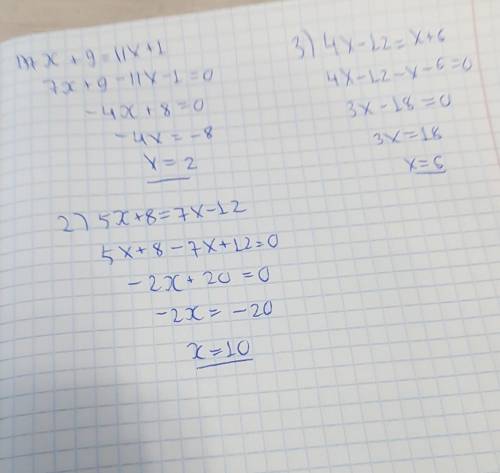 1) 7x + 9 = 11x + 1
7x + 9 - 11x - 1 = 0
-4x + 8 = 0
-4x = -8
x = 2
2) 5x + 8 = 7x - 12
5x + 8 - 7x + 12 = 0
-2x + 20 = 0
-2x = -20
x = 10
3) 4x - 12 = x + 6
4x - 12 - x - 6 = 0
3x - 18 = 0
3x = 18
x = 6